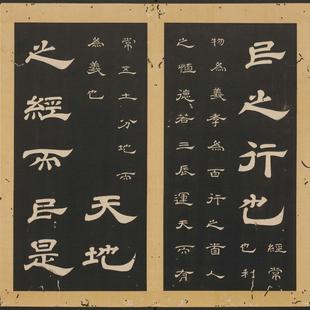 民之行也
經常
也利
物為義孝為百行之首人
之恆德若三辰運天而有
常五土分地而
為義也
天地
之經而民是